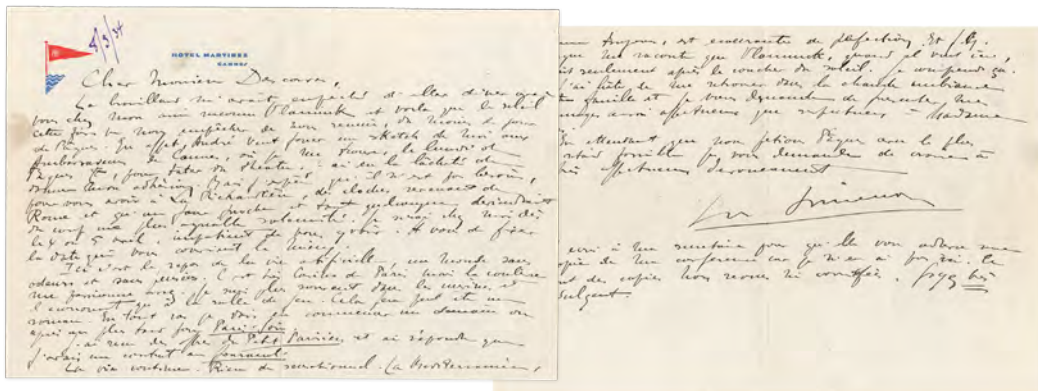 8/3/34
HÔTEL MARTINEZ
CANNES
Cher Monsieur Descaves,
Le brouillard m'avait empêché d'aller dîner avec
vous chez mon ami Vlaminck et voilà que le soleil
cette fois va nous empêcher de nous réunir, du moins le jour
de Pâques. En effet, André veut jouer un sketch de moi aux
Ambassadeurs de Cannes, où je me trouve, le lundi de
Pâques pour tâter du théâtre. J'ai eu la lâcheté de
donner mon adhésion. Mais j'espère qu'il n'est pas besoin,
pour vous avoir à La Richardière, des cloches revenant de
Rome et qu'un jour proche et quelconque deviendrait
du coup une plus agréable solennité. Je serai chez moi dès
le 4 ou 5 avril, impatient de vous y voir. A vous de fixer
la date qui vous convient le mieux.
Ici c'est le règne de la vie artificielle, un monde sans
odeurs et sans
me passionne assez. Je suis plus souvent dans les cuisines et
l'économat qu'à la salle de jeu. Cela fera peut être un
roman. En tout cas je dois en commencer un demain ou
après au plus tard pour Paris-Soir
J'ai reçu des offres du Petit Parisien et ai répondu que
j'avais un contrat au Journal.
La vie continue. Rien de sensationnel. La Méditerranée,
toujours, est exaspérante de perfection. Et
me raconte que Vlaminck, quand il vint ici,
seulement après le coucher du soleil. Je comprends ça.
J'ai hâte de me retrouver dans la chaude ambiance
famille et je vous demande de présenter mes
hommages aussi affectueux que respectueux à Madame
En attendant que nous fêtions Pâques avec le plus
de retard possible je vous demande de croire à
très affectueux dévouement
Simenon
écris à ma secrétaire pour qu'elle vous adresse une
copie de ma conférence car je n'en ai pas ici. Ce
sont des copies non revues ni corrigées. Soyez très
indulgent